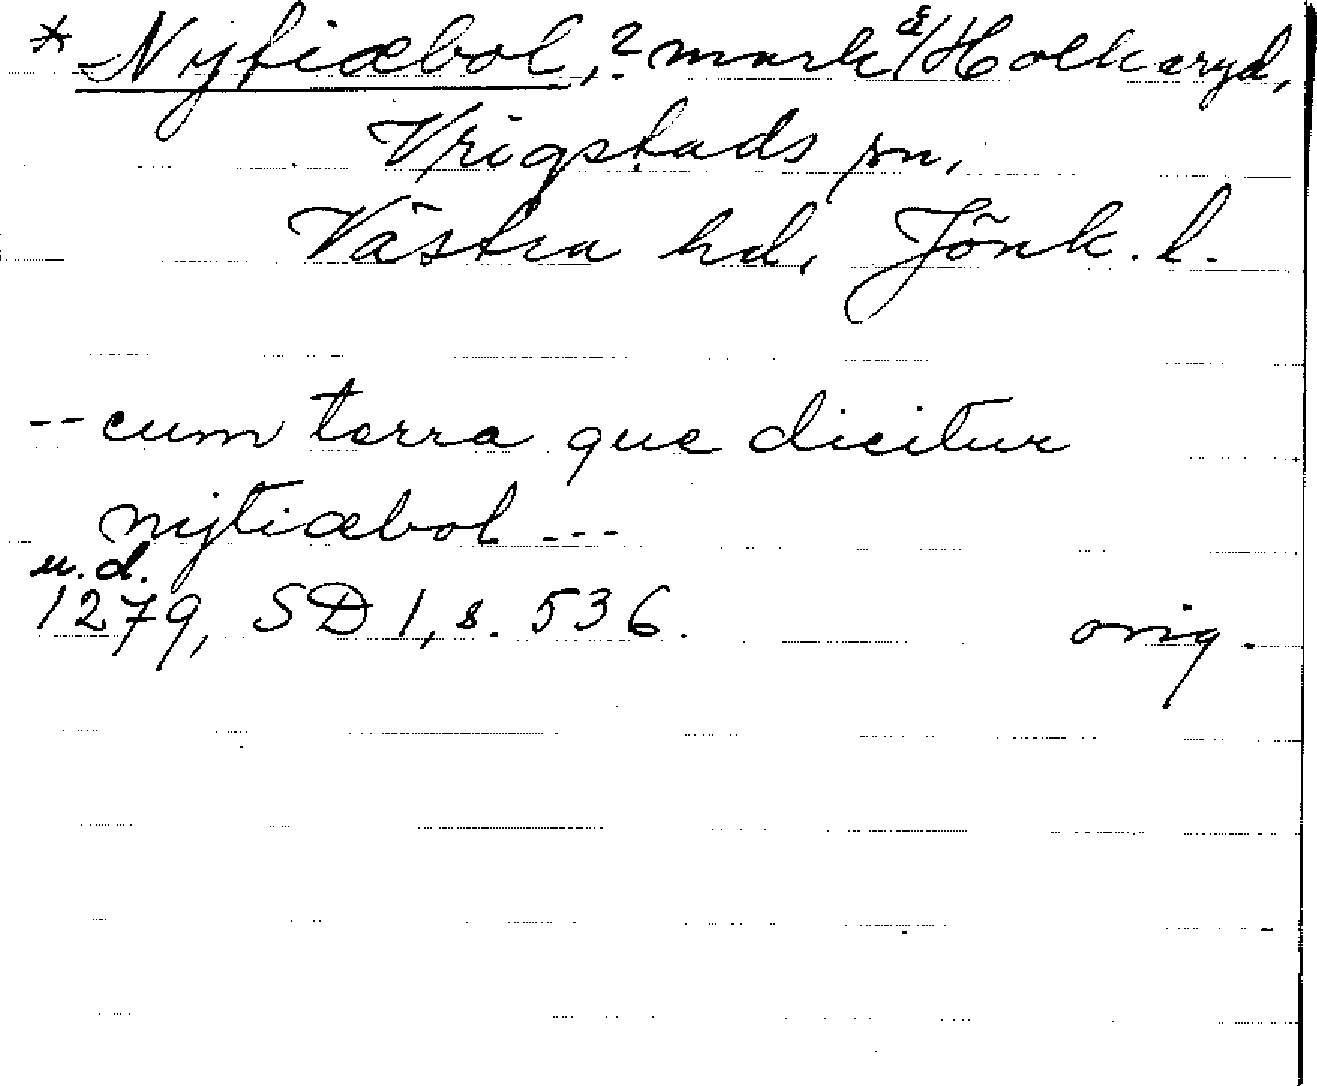 * Nijtiæbol, ? mark å/Holkaryd,
Vrigstads sn,
Västra hd, Jönk. l.
-- cum terra que dicitur
nijtiæbol ---
u.d.
1279, SD 1, s. 536. orig.